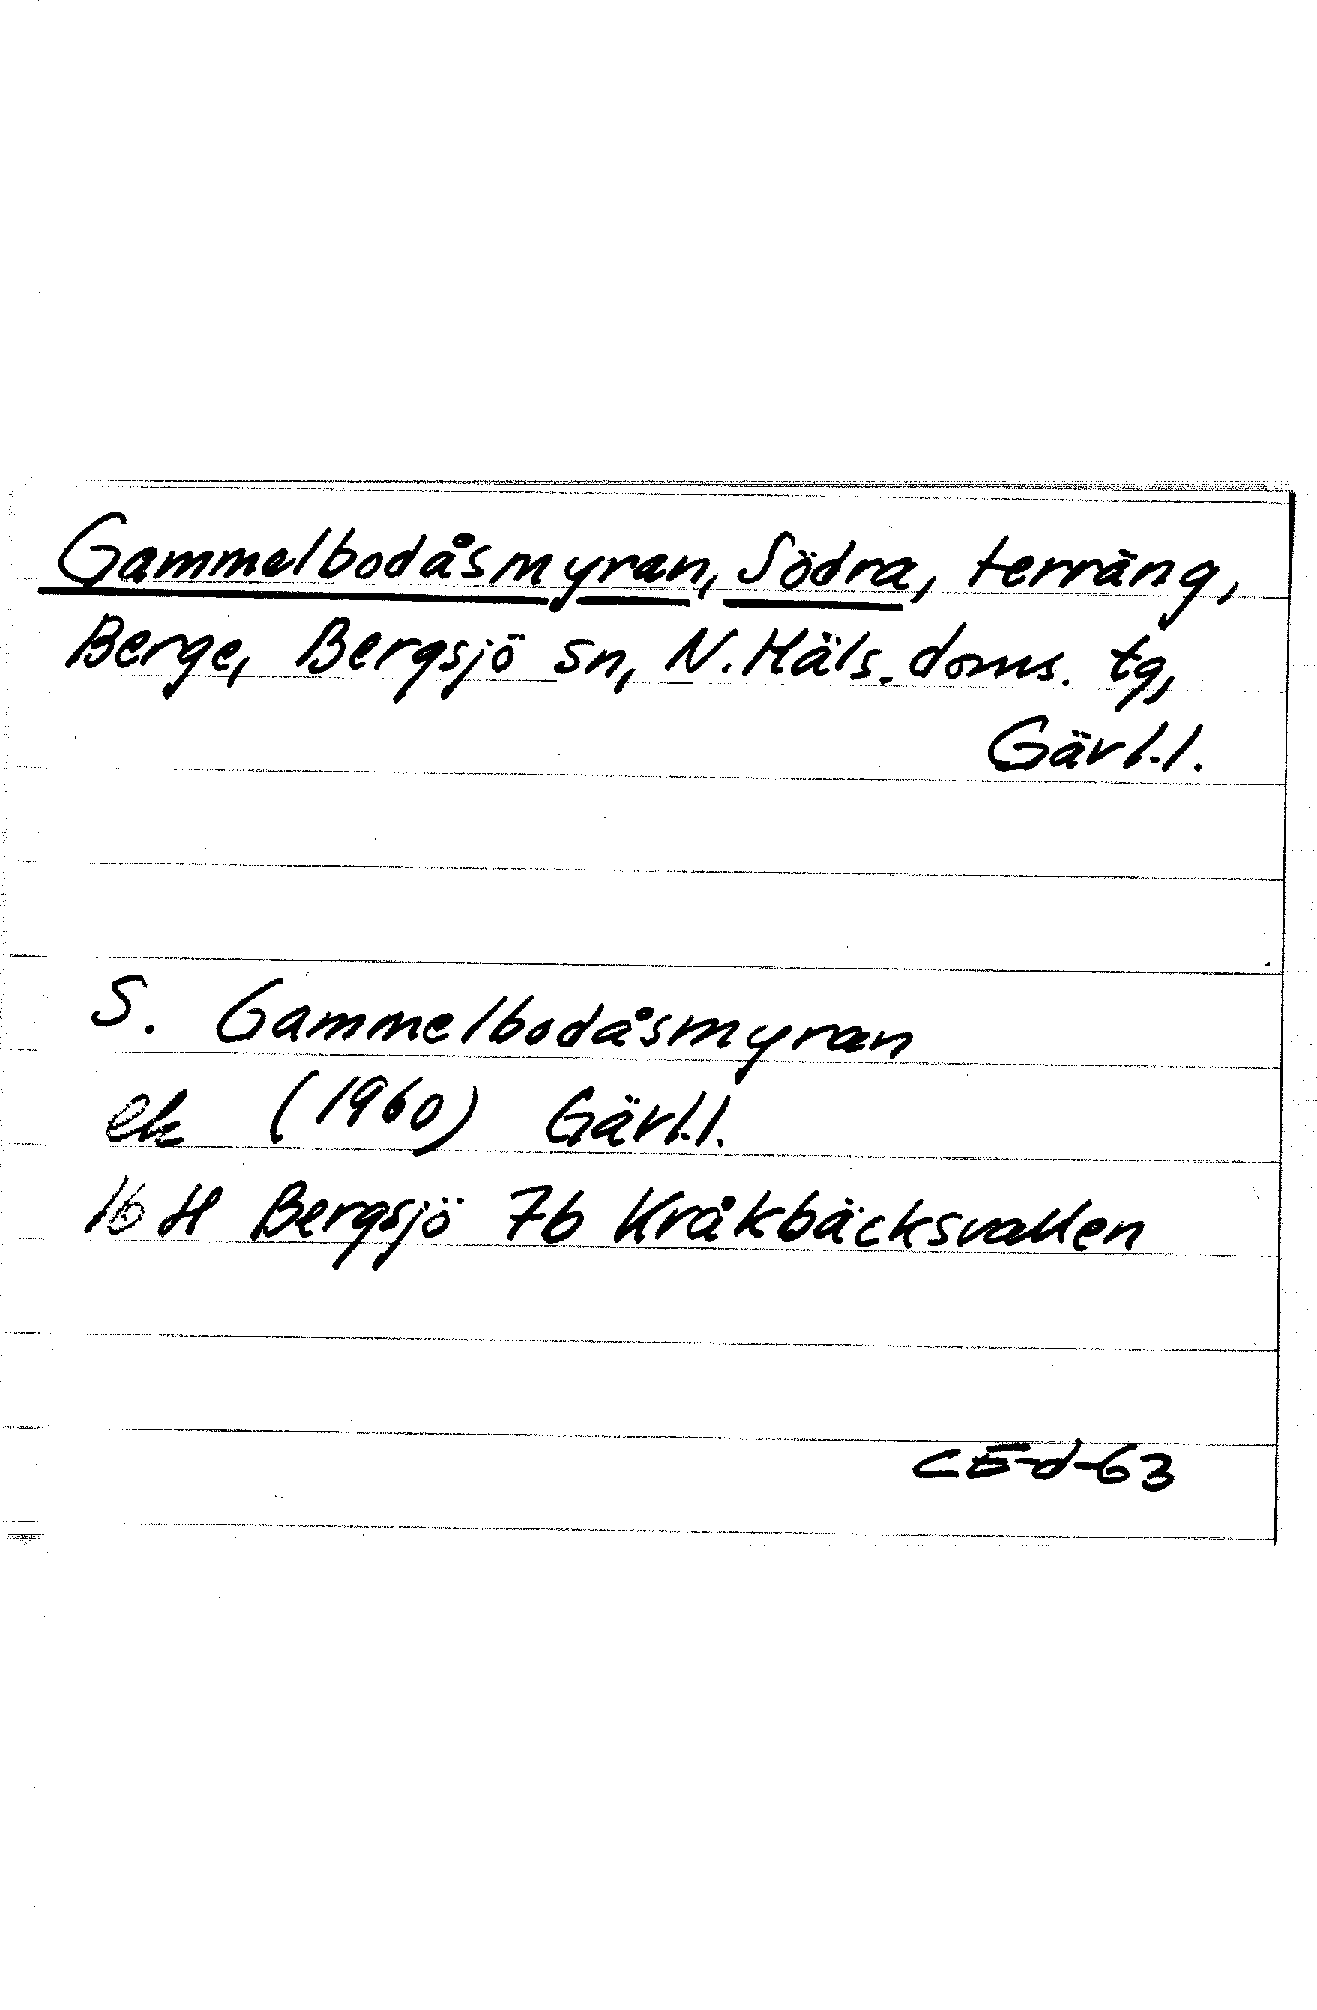 Gammelbodåsmyran, Södra, terräng,
Berge, Bergsjö sn, N. Häls. doms. tg,
Gävl.l.
S. Gammelbodåsmyran
ek (1960) Gävl.l.
16 H Bergsjö 7b Kråkbäcksvallen
CE-d-63